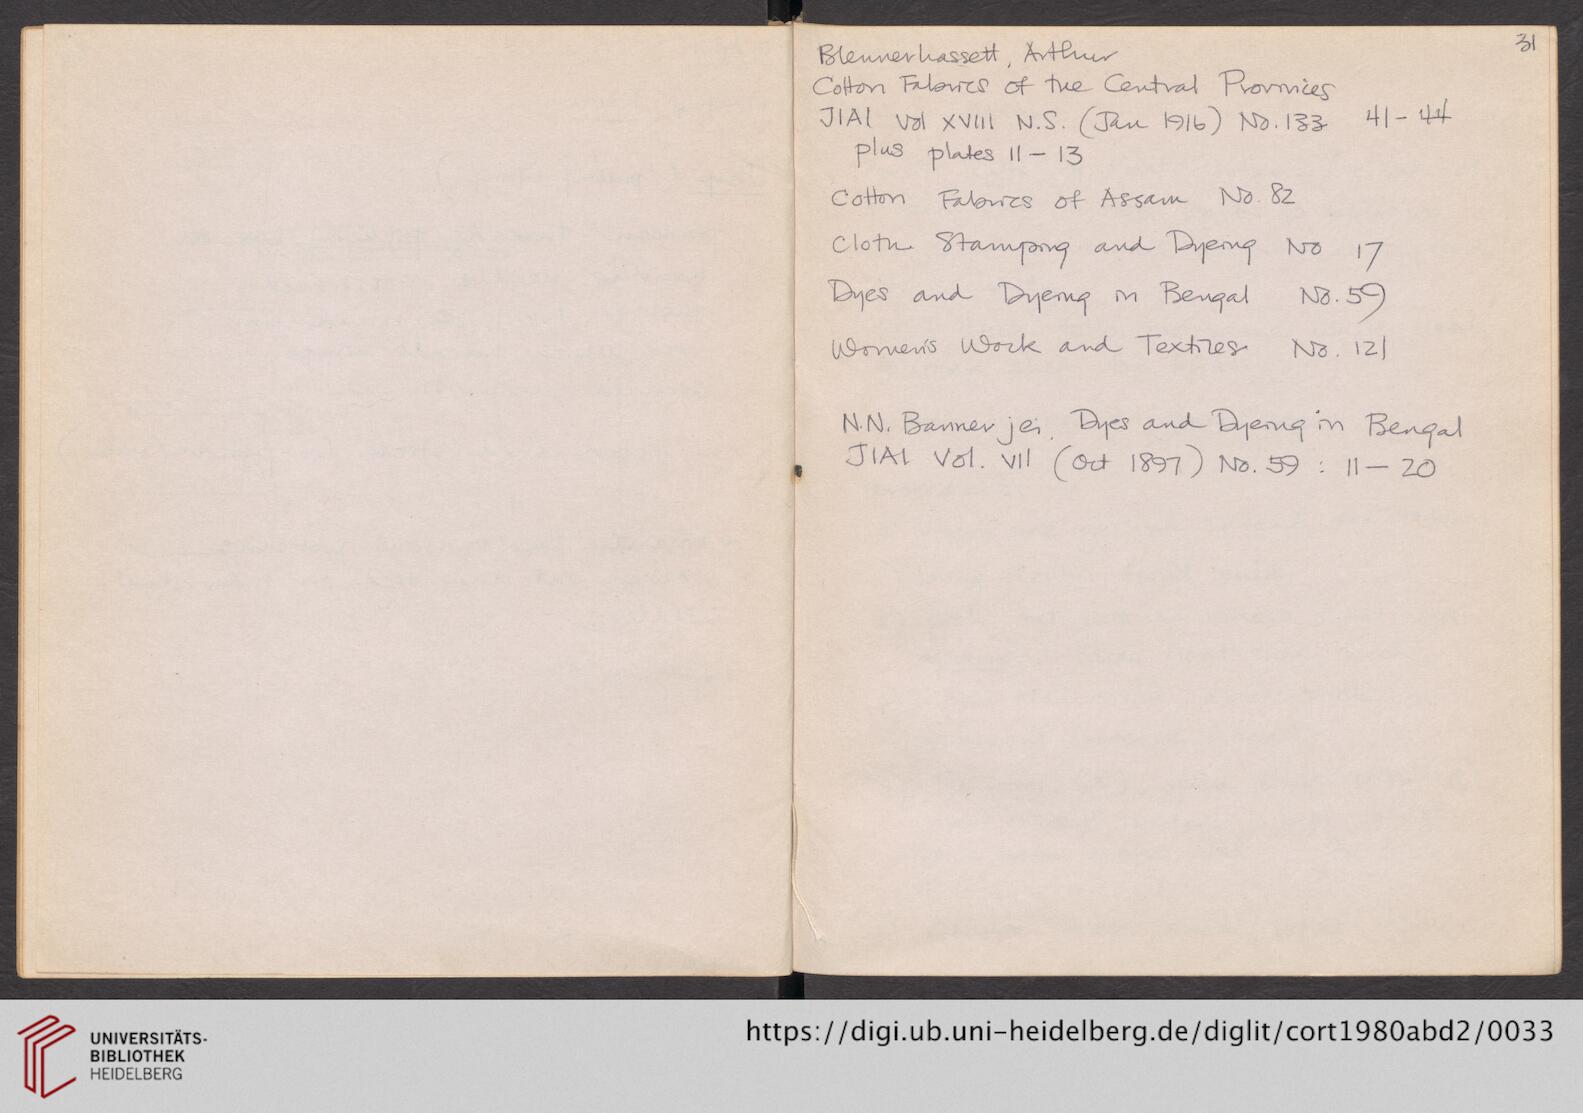 31
Blennerhassett, Arthur
Cotton Fabrics of the Central Provinces
JIAI Vol XVIII N.S. (Jan 1916) No. 133 41-44
plus plates 11-13
Cotton Fabrics of Assam No. 82
Cloth Stamping and Dyeing No 17
Dyes and Dyeing in Bengal No. 59
Women's Work and Textiles No. 121
N.N. Bannerjei. Dyes and Dyeing in Bengal
JIAI Vol. VII (Oct 1897) No. 59 : 11-20
UNIVERSITÄTS-
BIBLIOTHEK
HEIDELBERG
https://digi.ub.uni-heidelberg.de/diglit/cort1980abd2/0033